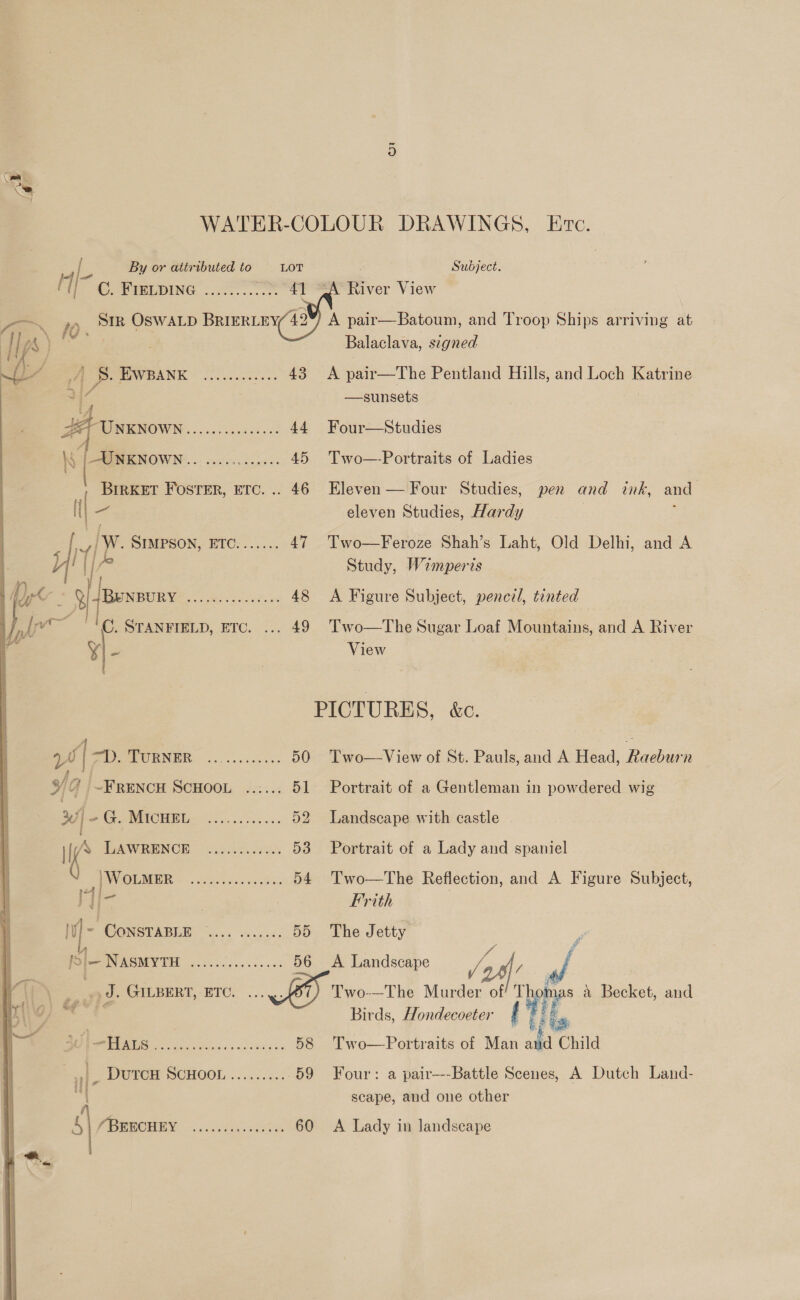 5
WATER-COLOUR DRAWINGS, ETC.
By or attributed to LOT Subject.
C. FIELDING ............ 41 A River View
SIR OSWALD BRIERLEY 42 A pair—Batoum, and Troop Ships arriving at
Balaclava, signed
S. EWBANK ............ 43 A pair—The Pentland Hills, and Loch Katrine
—sunsets
UNKNOWN ............... 44 Four—Studies
UNKNOWN .. ............ 45 Two—Portraits of Ladies
BIRKET FOSTER, ETC. .. 46 Eleven—Four Studies, pen and ink, and
eleven Studies, Hardy
W. SIMPSON, ETC. ...... 47 Two—Feroze Shah's Laht, Old Delhi, and A
Study, Wimperis
BUNBURY ............... 48 A Figure Subject, pencil, tinted
C. STANFIELD, ETC. ... 49 Two—The Sugar Loaf Mountains, and A River
View
PICTURES, &c.
D. TURNER ............ 50 Two—View of St. Pauls, and A Head, Raeburn
FRENCH SCHOOL ...... 51 Portrait of a Gentleman in powdered wig
G. MICHEL ............ 52 Landscape with castle
LAWRENCE ............ 53 Portrait of a Lady and spaniel
WOLMER ............... 54 Two—The Reflection, and A Figure Subject,
Frith
CONSTABLE .... ....... 55 The Jetty
NASMYTH ............... 56 A Landscape
J. GILBERT, ETC. ... 57 Two—The Murder of Thomas à Becket, and
Birds, Hondecoeter
HALS ..................... 58 Two—Portraits of Man and Child
DUTCH SCHOOL ......... 59 Four: a pair—Battle Scenes, A Dutch Land-
scape, and one other
BEECHEY ............... 60 A Lady in landscape